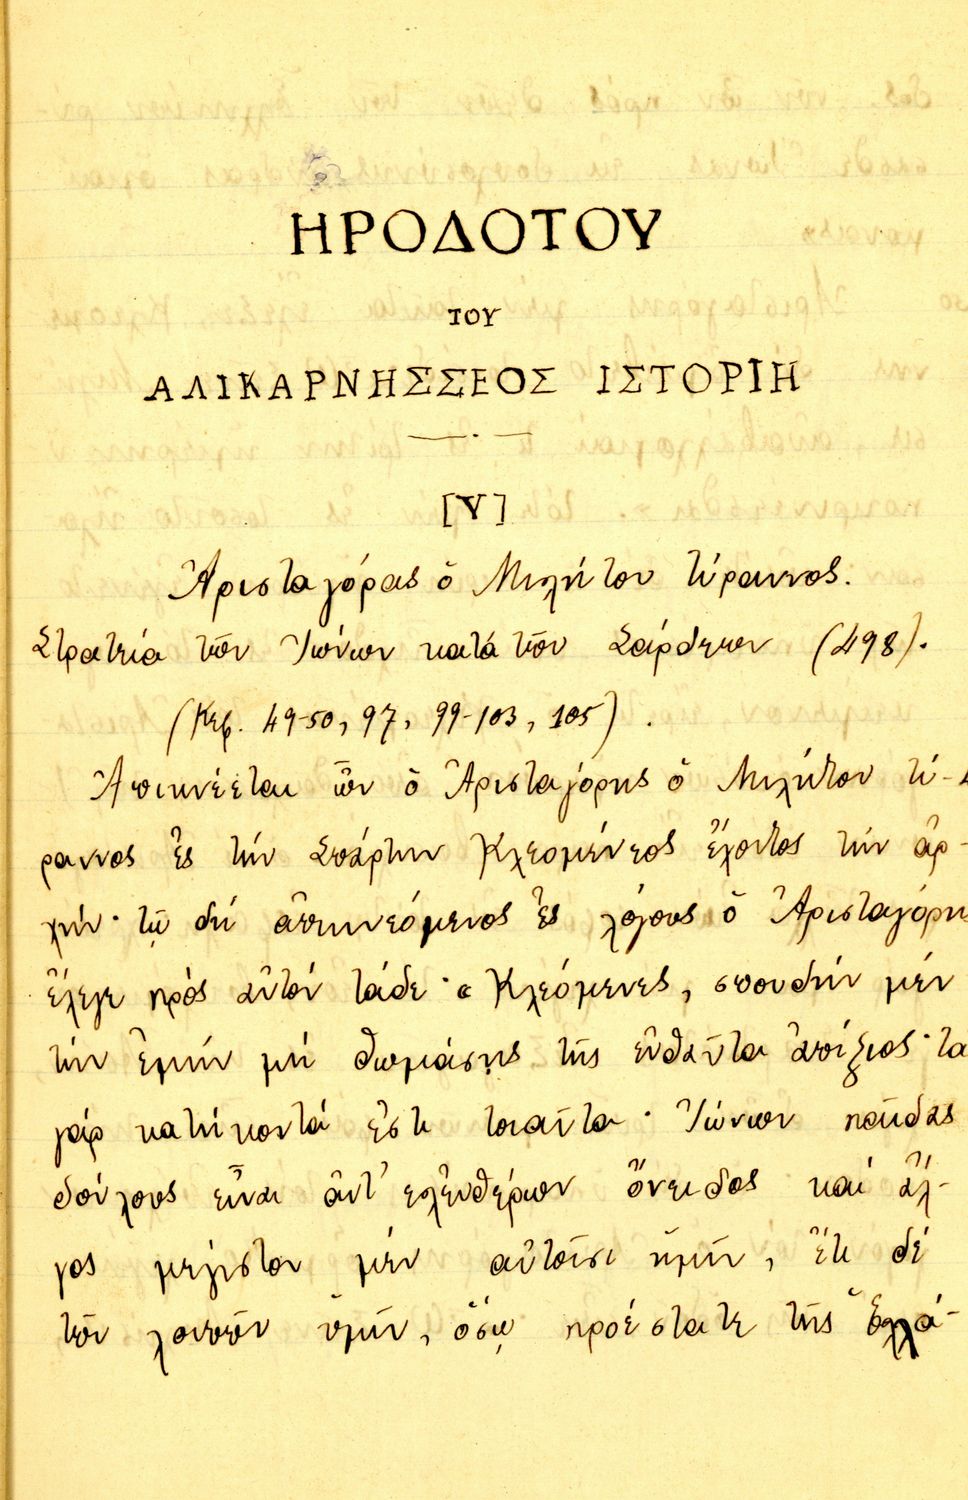 ΗΡΟΔΟΤΟΥ
ΤΟΥ
ΑΛΙΚΑΡΝΗΣΣΕΟΣ ΙΣΤΟΡΙΗ
[Υ]
Ἀρισταγόρας ὁ Μιλήτου τύραννος.
Στρατεία τῶν Ἰώνων κατά τῶν Σάρδεων (498).
(Κεφ. 49-50, 97, 99-103, 105).
Ἀπικνέεται ὦν ὁ Ἀρισταγόρης ὁ Μιλήτου τύ-
ραννος ἐς τήν Σπάρτην Κλεομένεος ἔχοντος τήν ἀρ-
χήν· τῷ δή ἀπικνεόμενος ἐς λόγους ὁ Ἀρισταγόρη
ἔλεγε πρός αὐτόν τάδε· «Κλεόμενες, σπουδήν μέν
τήν ἐμήν μή θωμάσῃς τῆς ἐνθαῦτα ἀπίξιος· τά
γάρ κατήκοντά ἐστι τοιαῦτα· Ἰώνων παῖδας
δούλους εἶναι ἀντ' ἐλευθέρων ὄνειδος καί ἄλ-
γος μέγιστον μέν αὐτοῖσι ἡμῖν, ἔτι δέ
τῶν λοιπῶν ὑμῖν, ὅσῳ προέστατε τῆς Ἑλλά-